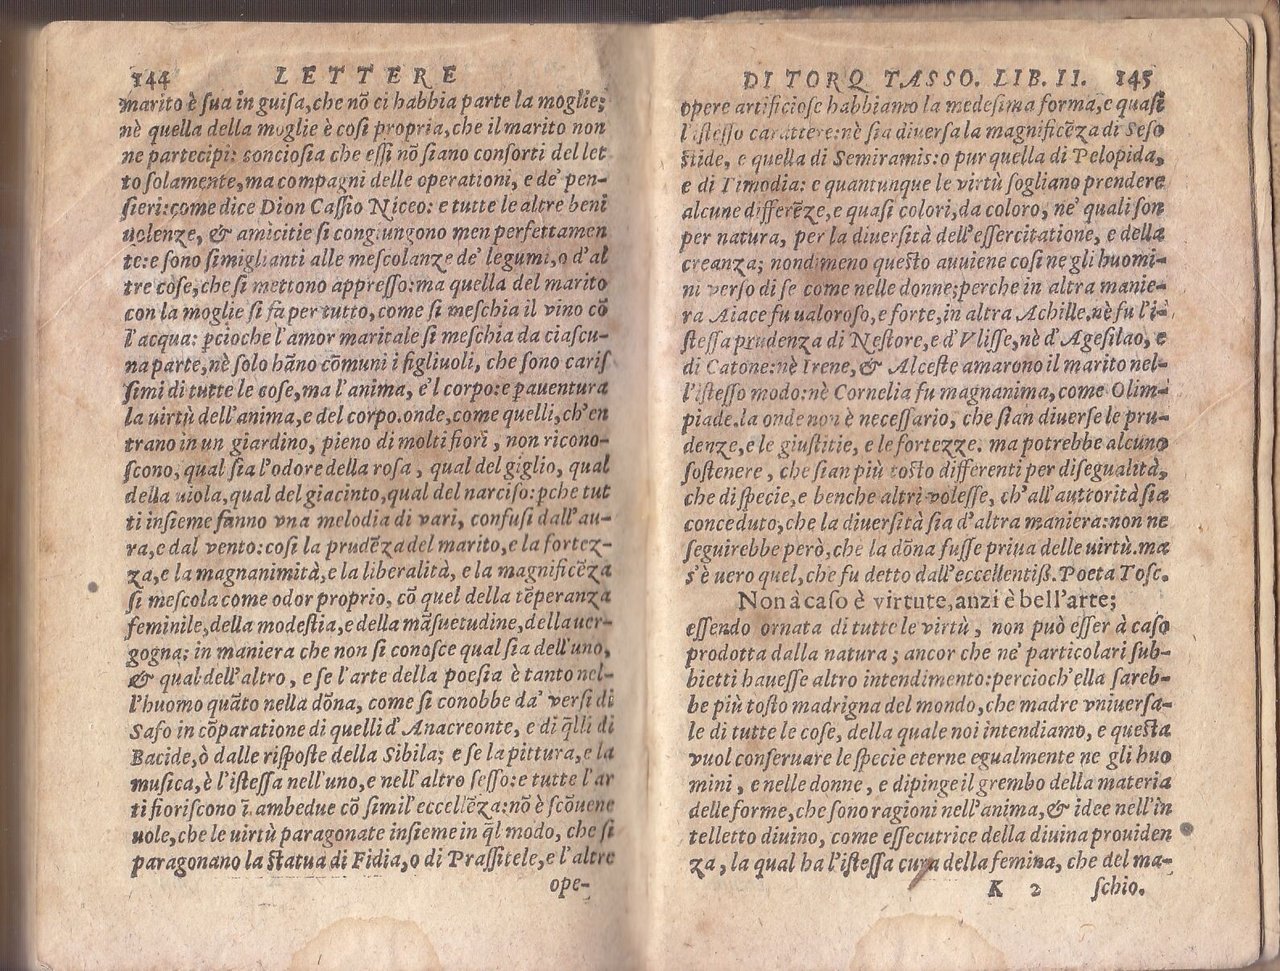 144 LETTERE
marito è sua in guisa, che nõ ci habbia parte la moglie;
nè quella della moglie è cosi propria, che il marito non
ne partecipi: conciosia che essi nõ siano consorti del let
to solamente, ma compagni delle operationi, e de' pen-
sieri: come dice Dion Cassio Niceo: e tutte le altre beni
uolenze, & amicitie si congiungono men perfettamen
te: e sono simiglianti alle mescolanze de' legumi, o d'al
tre cose, che si mettono appresso: ma quella del marito
con la moglie si fa per tutto, come si meschia il vino cõ
l'acqua: ꝑcioche l'amor maritale si meschia da ciascu-
na parte, nè solo hãno cõmuni i figliuoli, che sono caris
simi di tutte le cose, ma l'anima, e'l corpo: e pauentura
la uirtù dell'anima, e del corpo. onde, come quelli, ch'en
trano in un giardino, pieno di molti fiori, non ricono-
scono, qual sia l'odore della rosa, qual del giglio, qual
della uiola, qual del giacinto, qual del narciso: ꝑche tut
ti insieme fanno vna melodia di vari, confusi dall'au-
ra, e dal vento: cosi la prudẽza del marito, e la fortez-
za, e la magnanimità, e la liberalità, e la magnificẽza
si mescola come odor proprio, cõ quel della tẽperanza
feminile, della modestia, e della mãsuetudine, della uer-
gogna; in maniera che non si conosce qual sia dell'uno,
& qual dell'altro, e se l'arte della poesia è tanto nel-
l'huomo quãto nella dõna, come si conobbe da' versi di
Safo in cõparatione di quelli d'Anacreonte, e di q̃lli di
Bacide, ò dalle risposte della Sibila; e se la pittura, e la
musica, è l'istessa nell'uno, e nell'altro sesso: e tutte l'ar
ti fioriscono ĩ ambedue cõ simil'eccellẽza: nõ è scõuene
uole, che le uirtù paragonate insieme in q̃l modo, che si
paragonano la statua di Fidia, o di Prassitele, e l'altre
ope-
DI TORQ. TASSO. LIB. II. 145
opere artificiose habbiamo la medesima forma, e quasi
l'istesso carattere: nè sia diuersa la magnificẽza di Seso
stide, e quella di Semiramis: o pur quella di Pelopida,
e di Timodia: e quantunque le virtù sogliano prendere
alcune differẽze, e quasi colori, da coloro, ne' quali son
per natura, per la diuersità dell'essercitatione, e della
creanza; nondimeno questo auuiene cosi ne gli huomi-
ni verso di se come nelle donne; perche in altra manie-
ra Aiace fu ualoroso, e forte, in altra Achille. nè fu l'i-
stessa prudenza di Nestore, e d'Vlisse, nè d'Agesilao, e
di Catone: nè Irene, & Alceste amarono il marito nel-
l'istesso modo: nè Cornelia fu magnanima, come Olim-
piade. la onde non è necessario, che sian diuerse le pru-
denze, e le giustitie, e le fortezze. ma potrebbe alcuno
sostenere, che sian più tosto differenti per disegualità,
che di specie, e benche altri volesse, ch'all'auttorità sia
conceduto, che la diuersità sia d'altra maniera: non ne
seguirebbe però, che la dõna fusse priua delle uirtù. ma
s'è uero quel, che fu detto dall'eccellentiß. Poeta Tosc.
Non à caso è virtute, anzi è bell'arte;
essendo ornata di tutte le virtù, non può esser à caso
prodotta dalla natura; ancor che ne' particolari sub-
bietti hauesse altro intendimento: percioch'ella sareb-
be più tosto madrigna del mondo, che madre vniuersa-
le di tutte le cose, della quale noi intendiamo, e questa
vuol conseruare le specie eterne egualmente ne gli huo
mini, e nelle donne, e dipinge il grembo della materia
delle forme, che sono ragioni nell'anima, & idee nell'in
telletto diuino, come essecutrice della diuina prouiden
za, la qual ha l'istessa cura della femina, che del ma-
K 2 schio.